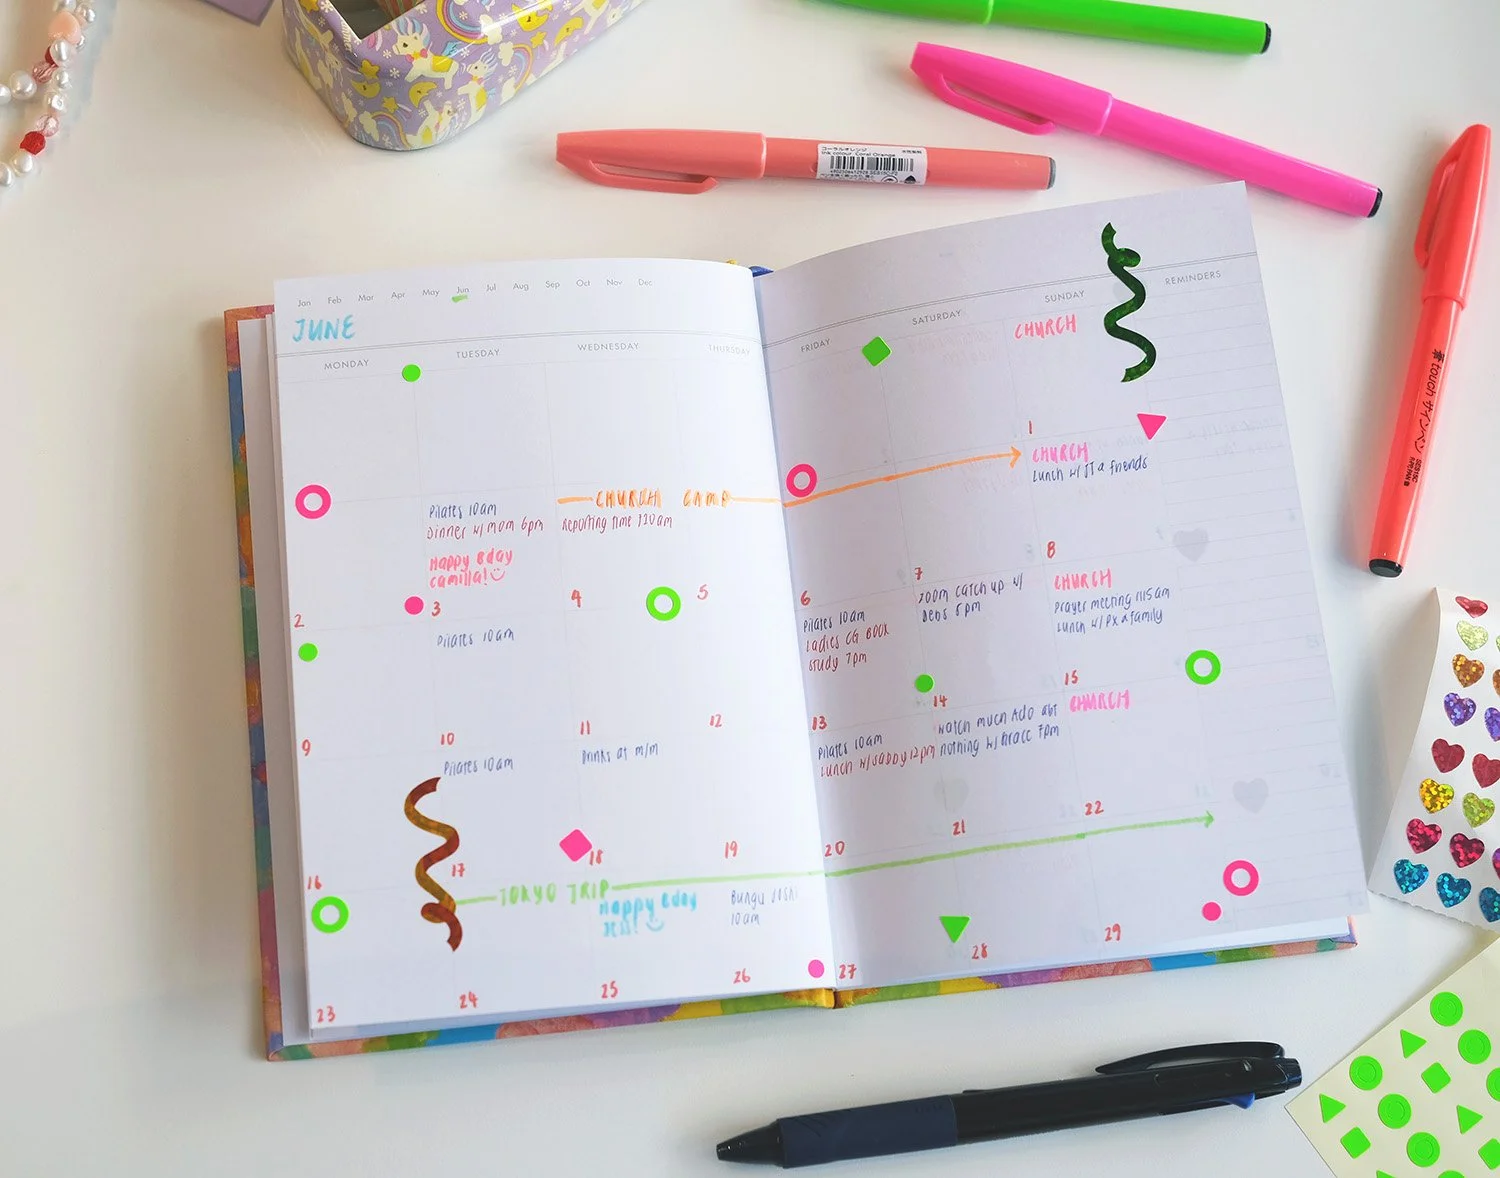 コーラルオレンジ
Ink colour: Coral Orange
touch サインペン
SES15C
Jan Feb Mar Apr May Jun Jul Aug Sep Oct Nov Dec
JUNE
MONDAY TUESDAY WEDNESDAY THURSDAY FRIDAY SATURDAY SUNDAY REMINDERS
CHURCH
1
Pilates 10am
Dinner w/ mom 6pm
Happy Bday
Camilla!
CHURCH CAMP
Reporting time
CHURCH
Lunch w/ JJ & friends
2 3 4 5 6 7 8
Pilates 10am
Pilates 10am
Ladies CG Book
Study 7pm
Zoom catch up w/
Dens 5pm
CHURCH
Prayer meeting 1115am
Lunch w/ PX & family
9 10 11 12 13 14 15
Pilates 10am
Drinks at m/m
Pilates 10am
Lunch w/ daddy 12pm
Watch Much Ado abt
nothing w/ Grace 7pm
CHURCH
16 17 18 19 20 21 22
TOKYO TRIP
Happy Bday
Jess!
Bungu Joshi
10am
23 24 25 26 27 28 29